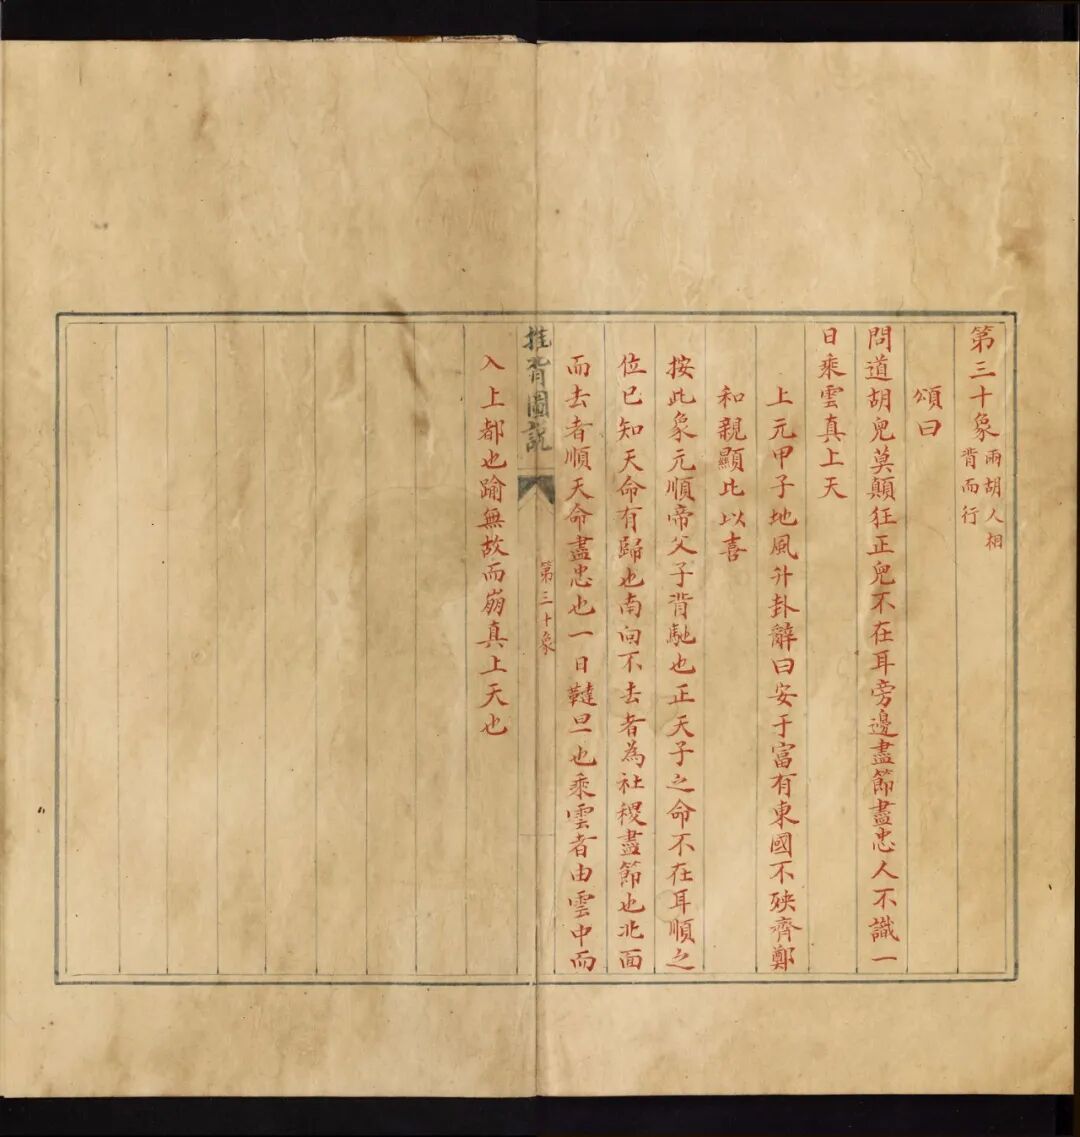 第三十象 兩胡人相
背而行
頌曰
問道胡兒莫顛狂正兒不在耳旁邊盡節盡忠人不識一
日乘雲真上天
上元甲子地風升卦辭曰安于富有東國不殃齊鄭
和親顯比以喜
按此象元順帝父子背馳也正天子之命不在耳順之
位已知天命有歸也南向不去者為社稷盡節也北面
而去者順天命盡忠也一日韃旦也乘雲者由雲中而
推背圖說
第三十象
入上都也踰無故而崩真上天也